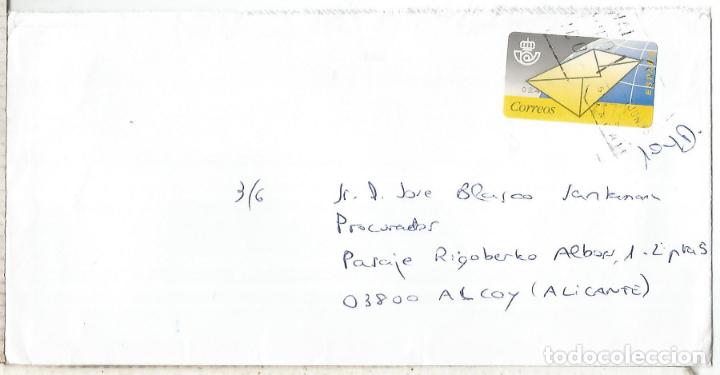 Correos
ESPAÑA
3/6
Sr. D. Jose Blasco Santamaria
Procurador
Pasaje Rigoberto Albors, 1-2º
03800 ALCOY (ALICANTE)
todocoleccion.net